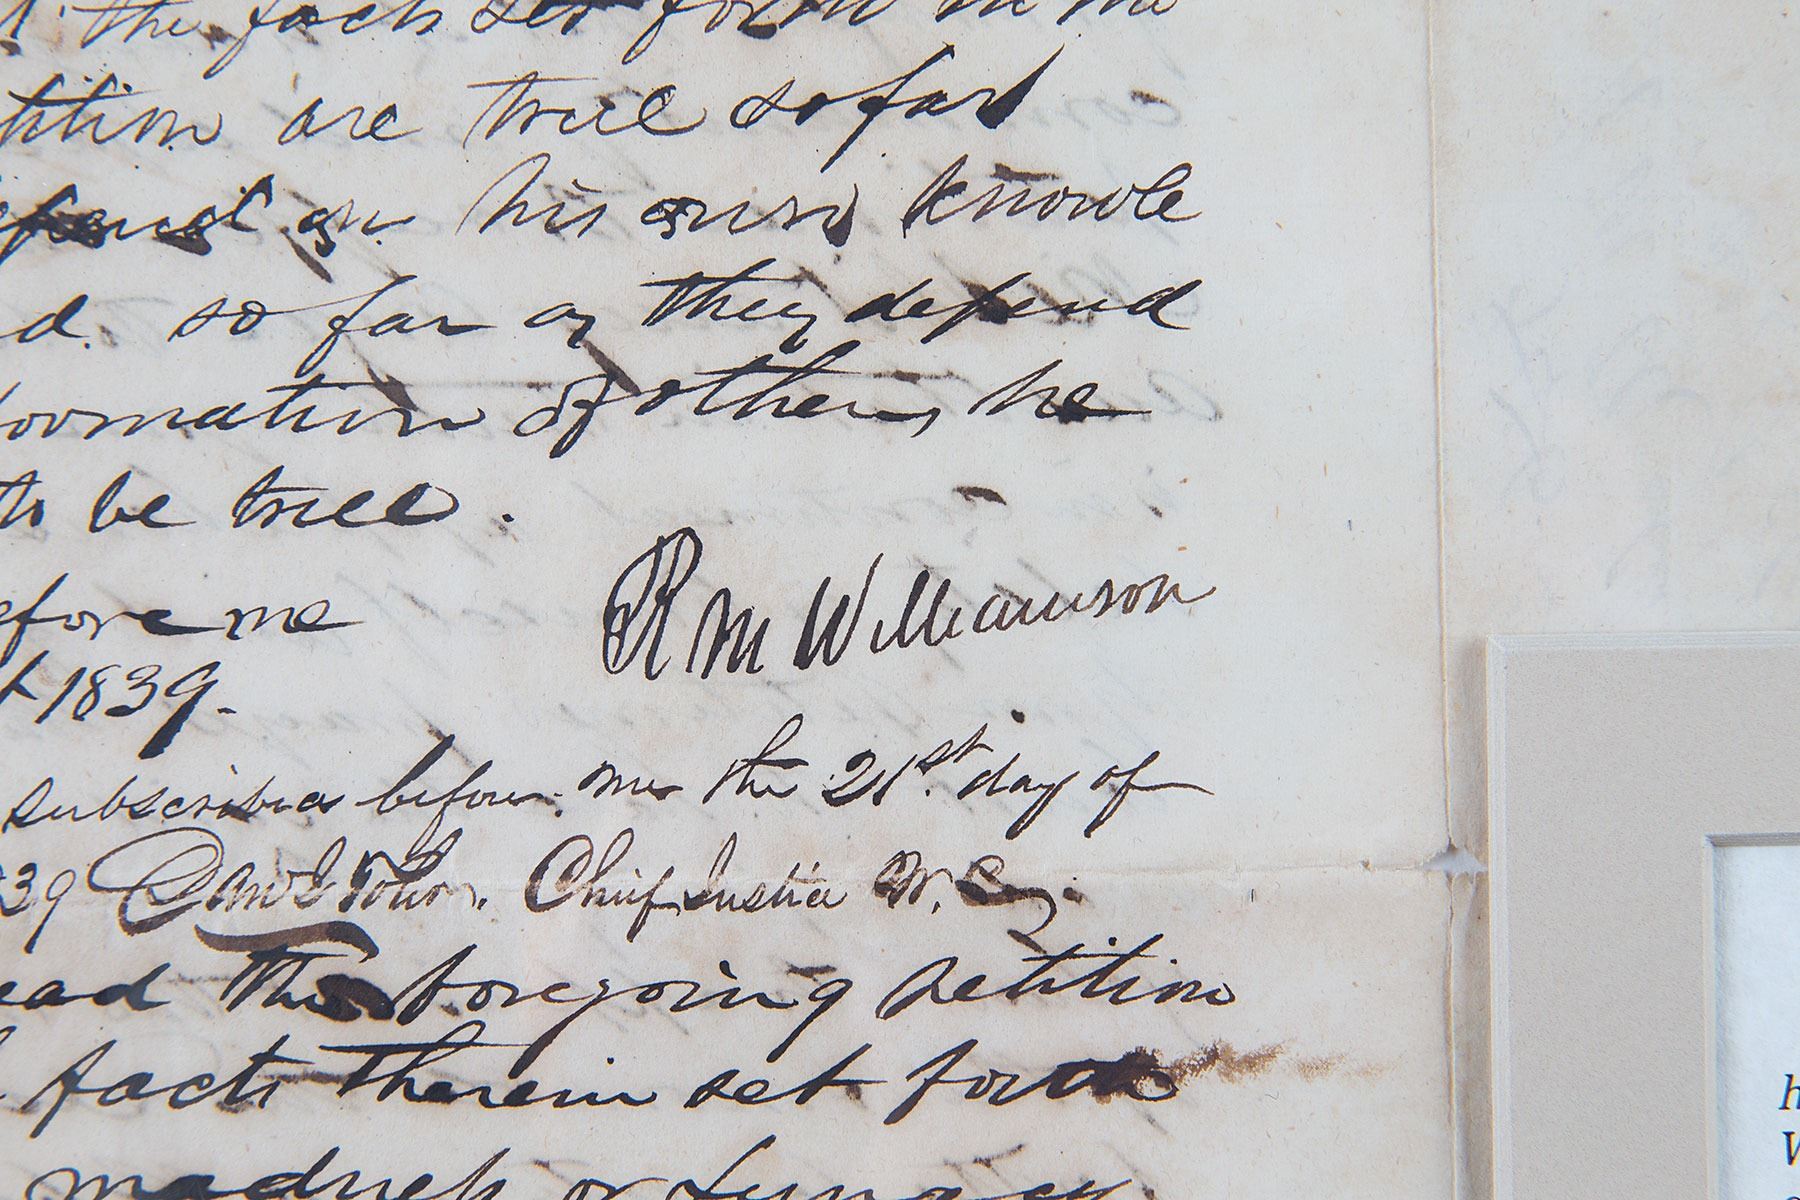 the facts set forth in the
tition are true so far
depend on his own knowle
d. so far as they depend
formation of others, he
to be true.
efore me
R M Williamson
t 1839.
subscribed before me the 21st day of
39 Chief Justice W. Cy.
ead the foregoing petition
facts therein set forth
madness or Lunacy
h
W